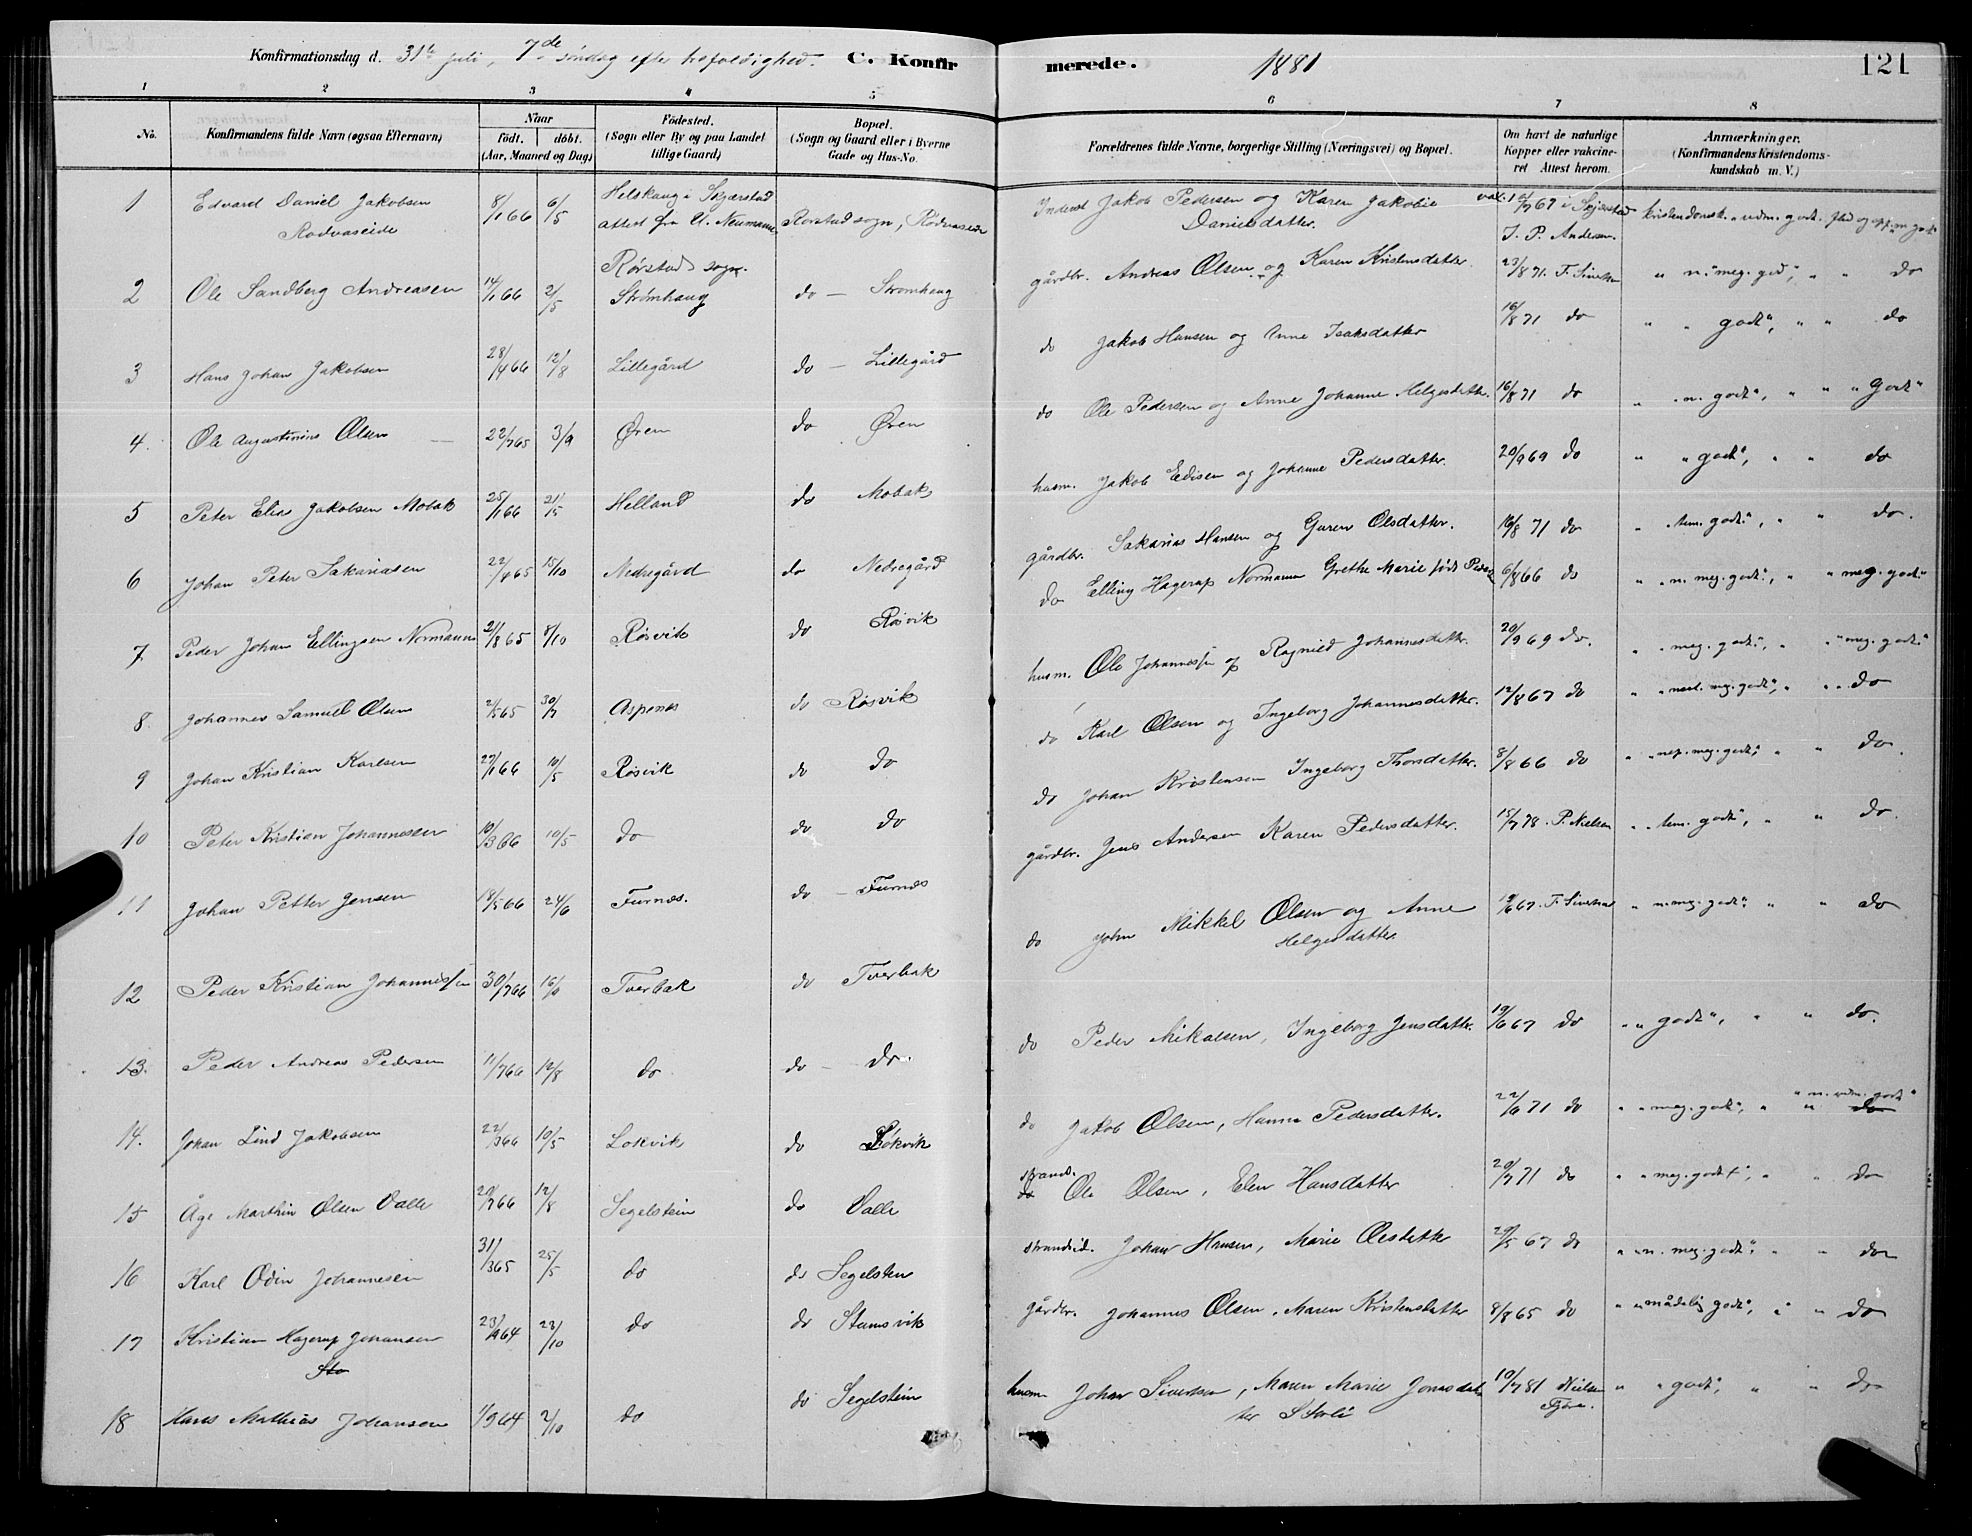 Konfirmationsdag d. 31te juli, 7de søndag efter trefoldighed. C. Konfirmerede. 1881 121
1 2 3 4 5 6 7 8
No. Konfirmandens fulde Navn (ogsaa Efternavn) Naar født. døbt. (Aar, Maaned og Dag) Fødested. (Sogn eller By og paa Landet tillige Gaard) Bopæl. (Sogn og Gaard eller i Byerne Gade og Hus-No. Forældrenes fulde Navne, borgerlige Stilling (Næringsvei) og Bopæl. Om havt de naturlige Kopper eller vakcineret Attest herom. Anmærkninger. (Konfirmandens Kristendomskundskab m. V.)
1 Edvard Daniel Jakobsen Rødvaseide 8/1 66 6/5 Helskaug i Skjærstad attest fra U. Neumann Rørstad sogn, Rødvaseide Inderst Jakob Pedersen og Karen Jakobie Danielsdatter. J. P. Andersen.
2 Ole Sandberg Andreasen 14/1 66 2/5 Rørstad sogn. Strømhaug do – Strømhaug gårdbr. Andreas Olsen og Karen Kristensdatter 23/8 71. F. Sivertsen " n. "meg. god", " " do
3 Hans Johan Jakobsen 28/4 66 12/8 Lillegård do – Lillegård do Jakob Hansen og Anne Isaksdatter 16/8 71 do " " godt", " " do
4. Ole Augustinius Olsen 22/7 65 3/9 Øren do Øren do Ole Pedersen og Anne Johanne Helgesdatter. 16/8 71 do " n. godt", " " "Godt"
5 Peter Elias Jakobsen Mobak 25/1 66 21/5 Helland do Mobak husm. Jakob Edisen og Johanne Pedersdatter. 20/9 69 do " "godt", " " do
6 Johan Peter Sakariasen 22/4 65 15/10 Nedregård do Nedregård gårdbr. Sakarias Hansen og Guren Olsdatter. 16/8 71 do " "tem. godt", " " do.
7 Peder Johan Ellingsen Normann 21/8 65 8/10 Røsvik do Røsvik do Elling Hagerup Normann Grethe Marie født 6/8 66 do " "n. meg. godt", " " meg. godt"
8. Johannes Samuel Olsen 2/5 65 30/7 Aspenes do Røsvik husm. Ole Johannessen og Ragnild Johannesdatter. 20/9 69 do. " "meg. godt", " "meg. godt"
9 Johan Kristian Karlsen 27/1 66 10/5 Røsvik do do do Karl Olsen og Ingeborg Johannesdatter. 12/8 67 do meg. godt", " " do
10 Peter Kristian Johannessen 10/3 66 10/5 do do do do Johan Kristensen Ingeborg Thorsdatter. 8/8 66 do meg. godt", " " do
11 Johan Petter Jensen 18/5 66 24/6 Furnes. do – Furnes gårdbr. Jens Andersen Karen Pedersdatter. 15/7 78. P. Nielsen " "tem. godt", " " do.
12 Peder Kristian Johannessen 30/7 66 Tverbak do Tverbak do John Mikkel Olsen og Anne Helgesdatter. 19/6 67. F. Sivertsen " n. meg. godt", " " do
13. Peder Andreas Pedersen 11/7 66 12/8 do do – do. do Peder Mikalsen, Ingeborg Jensdatter. 19/6 67 do " "godt", " " do.
14. Johan Lind Jakobsen 22/3 66 10/5 Løkvik do Løkvik do Jakob Olsen, Hanna Pedersdatter. 22/6 71 do " "meg. godt", " " do
15 Åge Marthin Olsen Valle 20/7 66 12/8 Segelstein do Valle strands. do Ole Olsen, Elen Hansdatter 20/7 71 do " "meg. godt", " " do
16 Karl Odin Johannesen 31/3 65 25/5 do do Segelsten strandsid. Johan Hansen, Marie Olesdatter 29/5 67 do " "n. meg. godt", " " do
17 Kristian Hagerup Johansen Sto 23/9 64 23/10 do do Stamsvik gårdbr. Johannes Olsen. Maren Kristensdatter 8/8 65 do " "mådelig godt", " " do
18 Hans Mathias Johansen 1/9 64 2/10 do do Segelstein husm Johan Sivertsen, Maren Marie Jonasdatter Storli 10/7 81 Nielsen " "godt", " " do